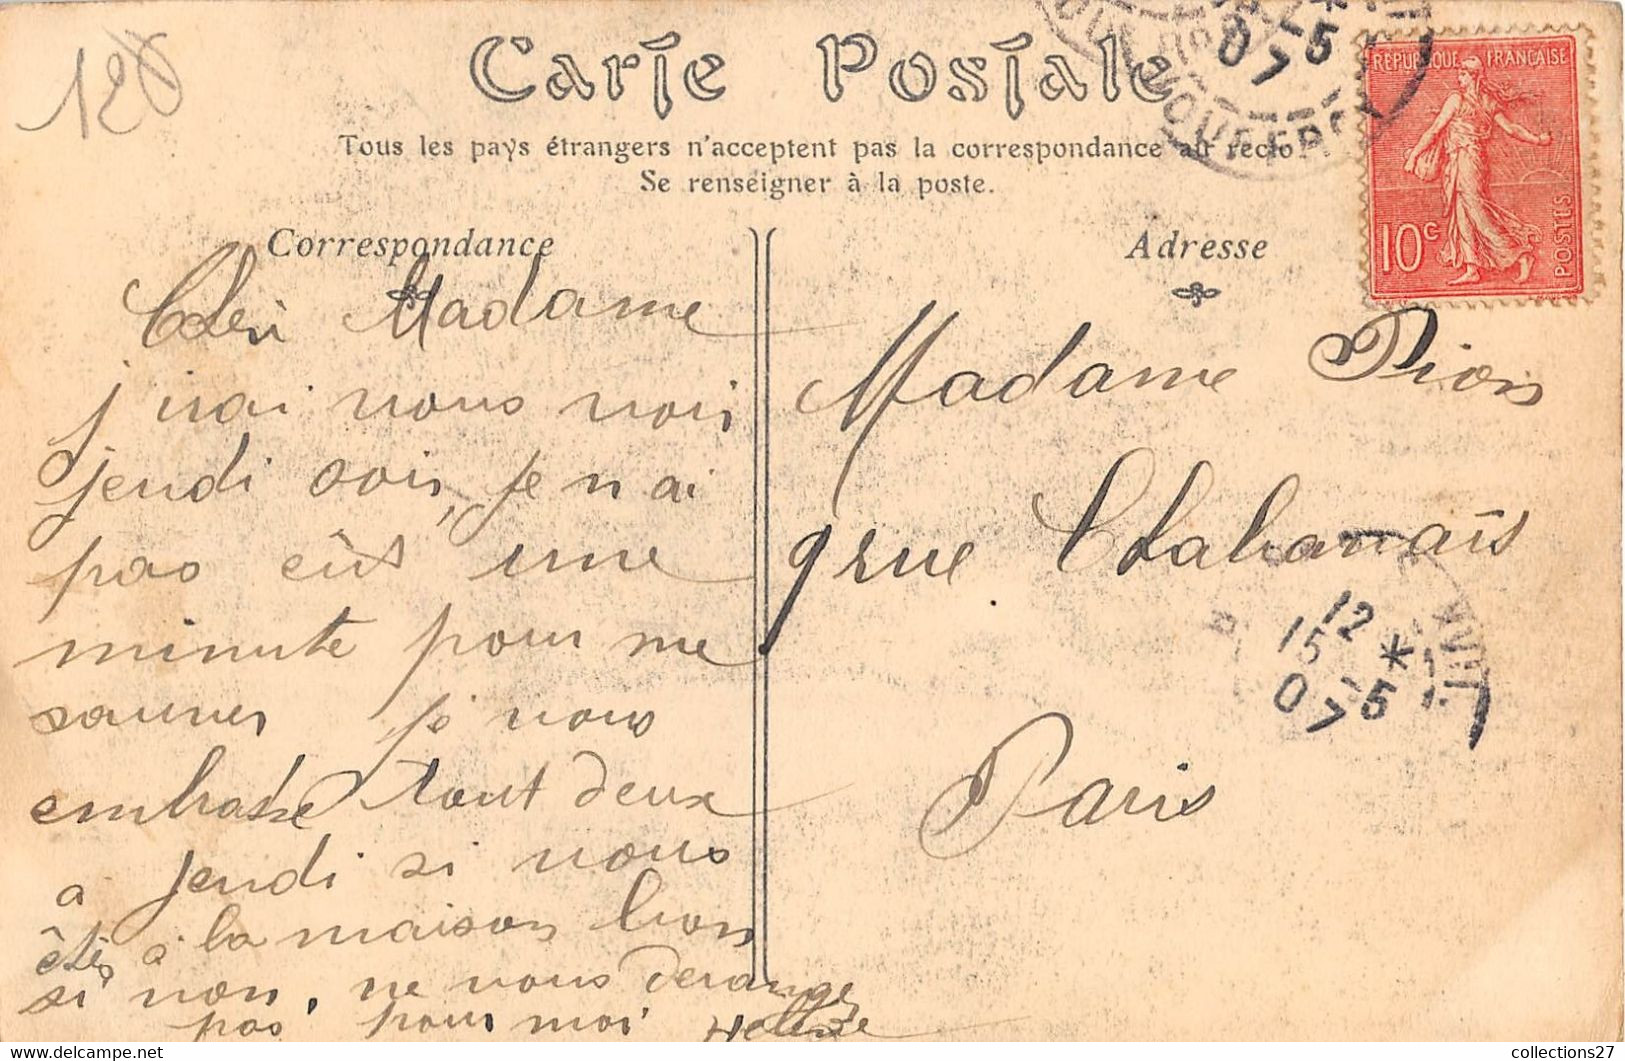 120
Carte Postale
Tous les pays étrangers n'acceptent pas la correspondance au recto
Se renseigner à la poste.
Correspondance
Cher Madame
j irai vous voir
jeudi soir, je n ai
pas eut une
minute pour me
sauver je vous
embrasse tout deux
a jeudi si vous
êtes a la maison bon
si non, ne vous deranger
pas pour moi Helene
Adresse
Madame Pion
9 rue Chabanais
Paris
REPUBLIQUE FRANÇAISE
10c
POSTES
5
07
12 *
15 - 5
07
collections27